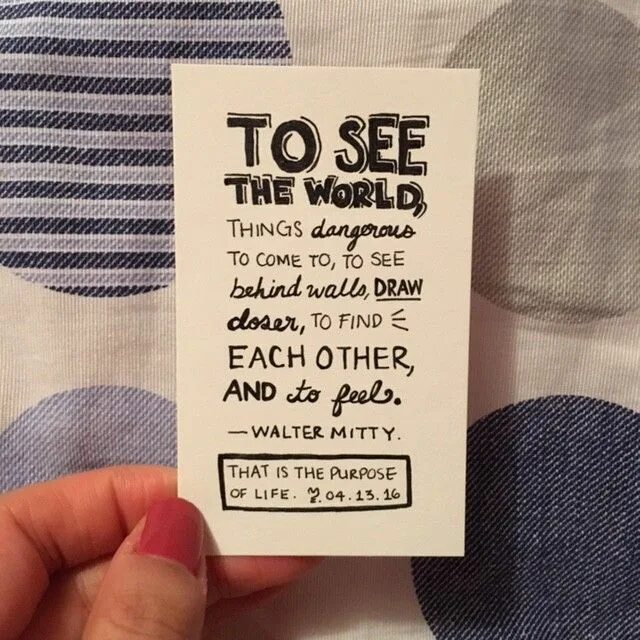 TO SEE
THE WORLD,
THINGS dangerous
TO COME TO, TO SEE
behind walls, DRAW
closer, TO FIND
EACH OTHER,
AND to feel.
— WALTER MITTY.
THAT IS THE PURPOSE
OF LIFE. 04.13.16